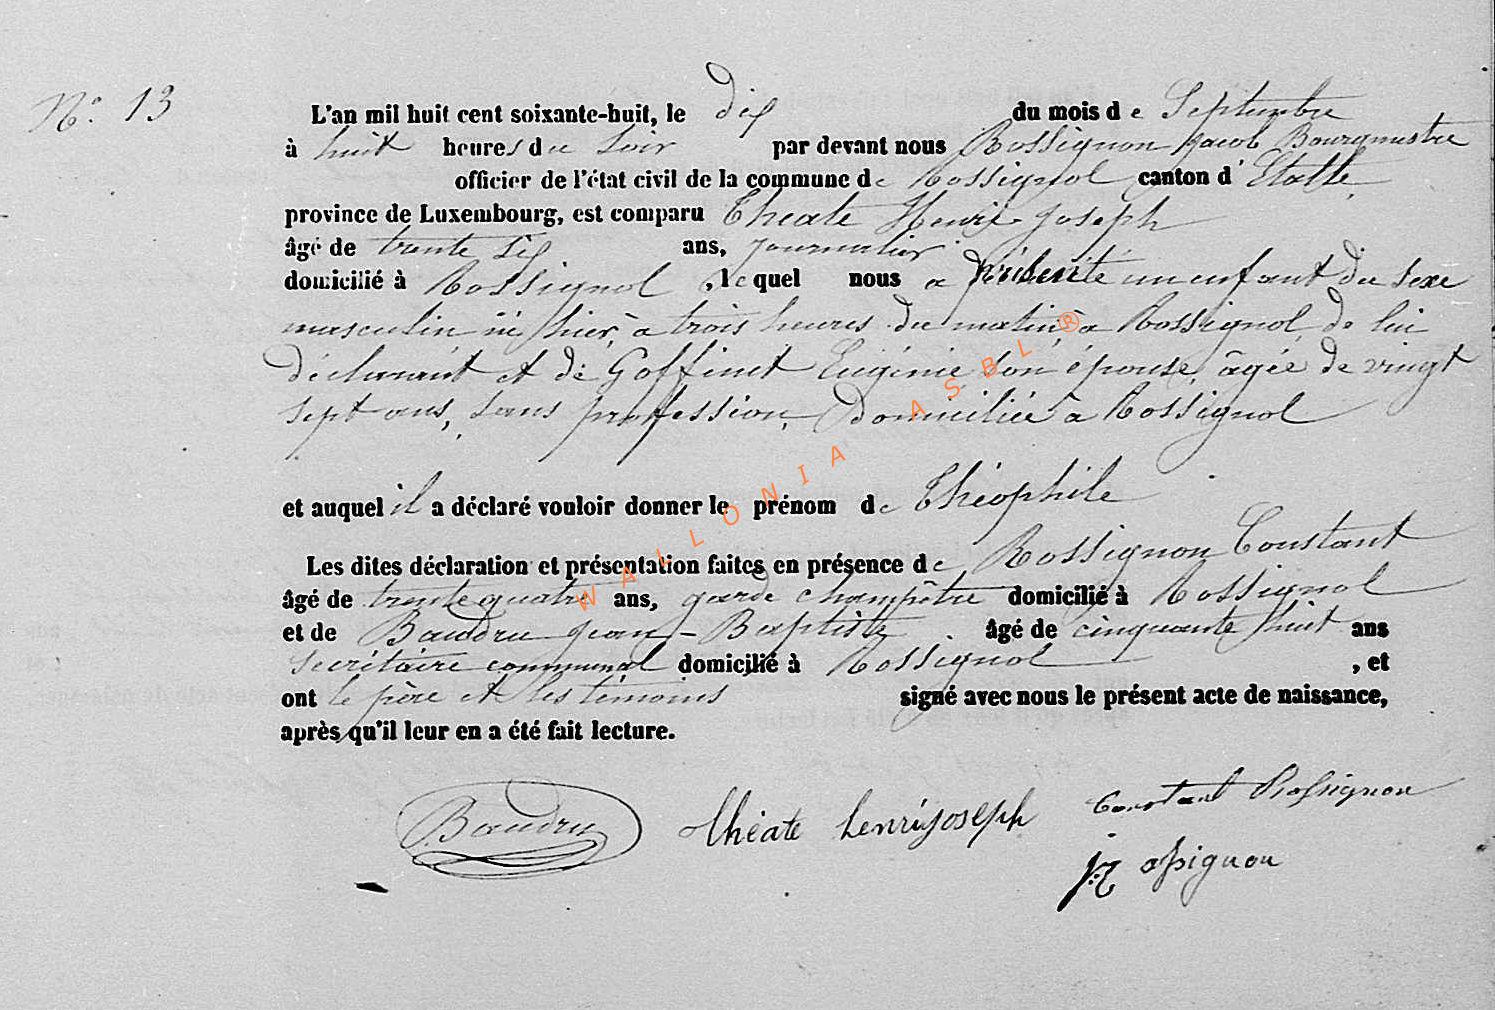 N° 13
L'an mil huit cent soixante-huit, le dix du mois de Septembre
à huit heures du Soir par devant nous Rossignon Jacob Bourgmestre
officier de l'état civil de la commune de Rossignol canton d'Etalle,
province de Luxembourg, est comparu Théate Henri Joseph
âgé de trente six ans, journalier
domicilié à Rossignol, lequel nous a présenté un enfant du Sexe
masculin né hier, à trois heures du matin à Rossignol de lui
déclarant et de Goffinet Eugénie son épouse, âgée de vingt
sept ans, sans profession, domiciliée à Rossignol
et auquel il a déclaré vouloir donner le prénom de Théophile
Les dites déclaration et présentation faites en présence de Rossignon Constant
âgé de trente quatre ans, garde champêtre domicilié à Rossignol
et de Baudru Jean-Baptiste âgé de cinquante huit ans
Secrétaire communal domicilié à Rossignol, et
ont le père et les témoins signé avec nous le présent acte de naissance,
après qu'il leur en a été fait lecture.
Baudru théate henrijoseph Constant Rossignon
J Rossignon
WALLONIA ASBL ®